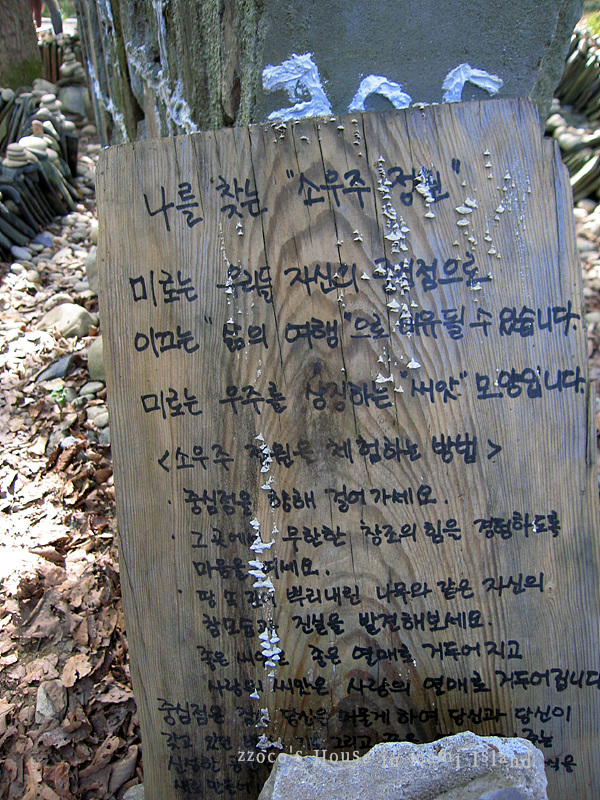 나를 찾는 "소우주 정원"
미로는 우리들 자신의 중심점으로
이끄는 "삶의 여행"으로 비유될 수 있습니다.
미로는 우주를 상징하는 "씨앗" 모양입니다.
<소우주 정원을 체험하는 방법>
· 중심점을 향해 걸어가세요.
· 그곳에서 무한한 창조의 힘을 경험하도록
마음을 여세요.
· 땅 속 깊이 뿌리내린 나무와 같은 자신의
참모습과 진실을 발견해보세요.
좋은 씨앗은 좋은 열매로 거두어지고
사랑의 씨앗은 사랑의 열매로 거두어집니다
중심점은 당신을 머물게 하여 당신과 당신이
갖고 있던 그리고
zzoco's House in Namj Island